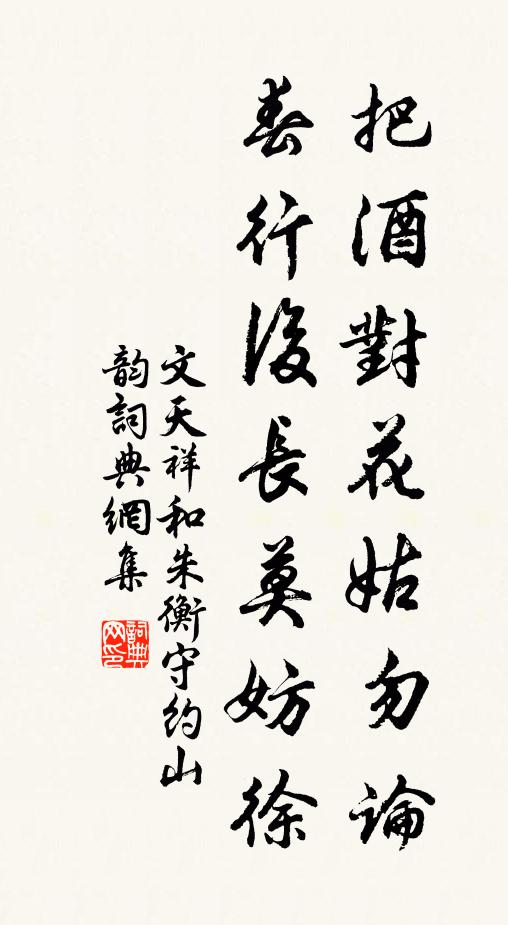 把酒對花姑勿論
春行復長莫妨徐
文天祥和朱衡守約山
韵詞典網集
詞典網印